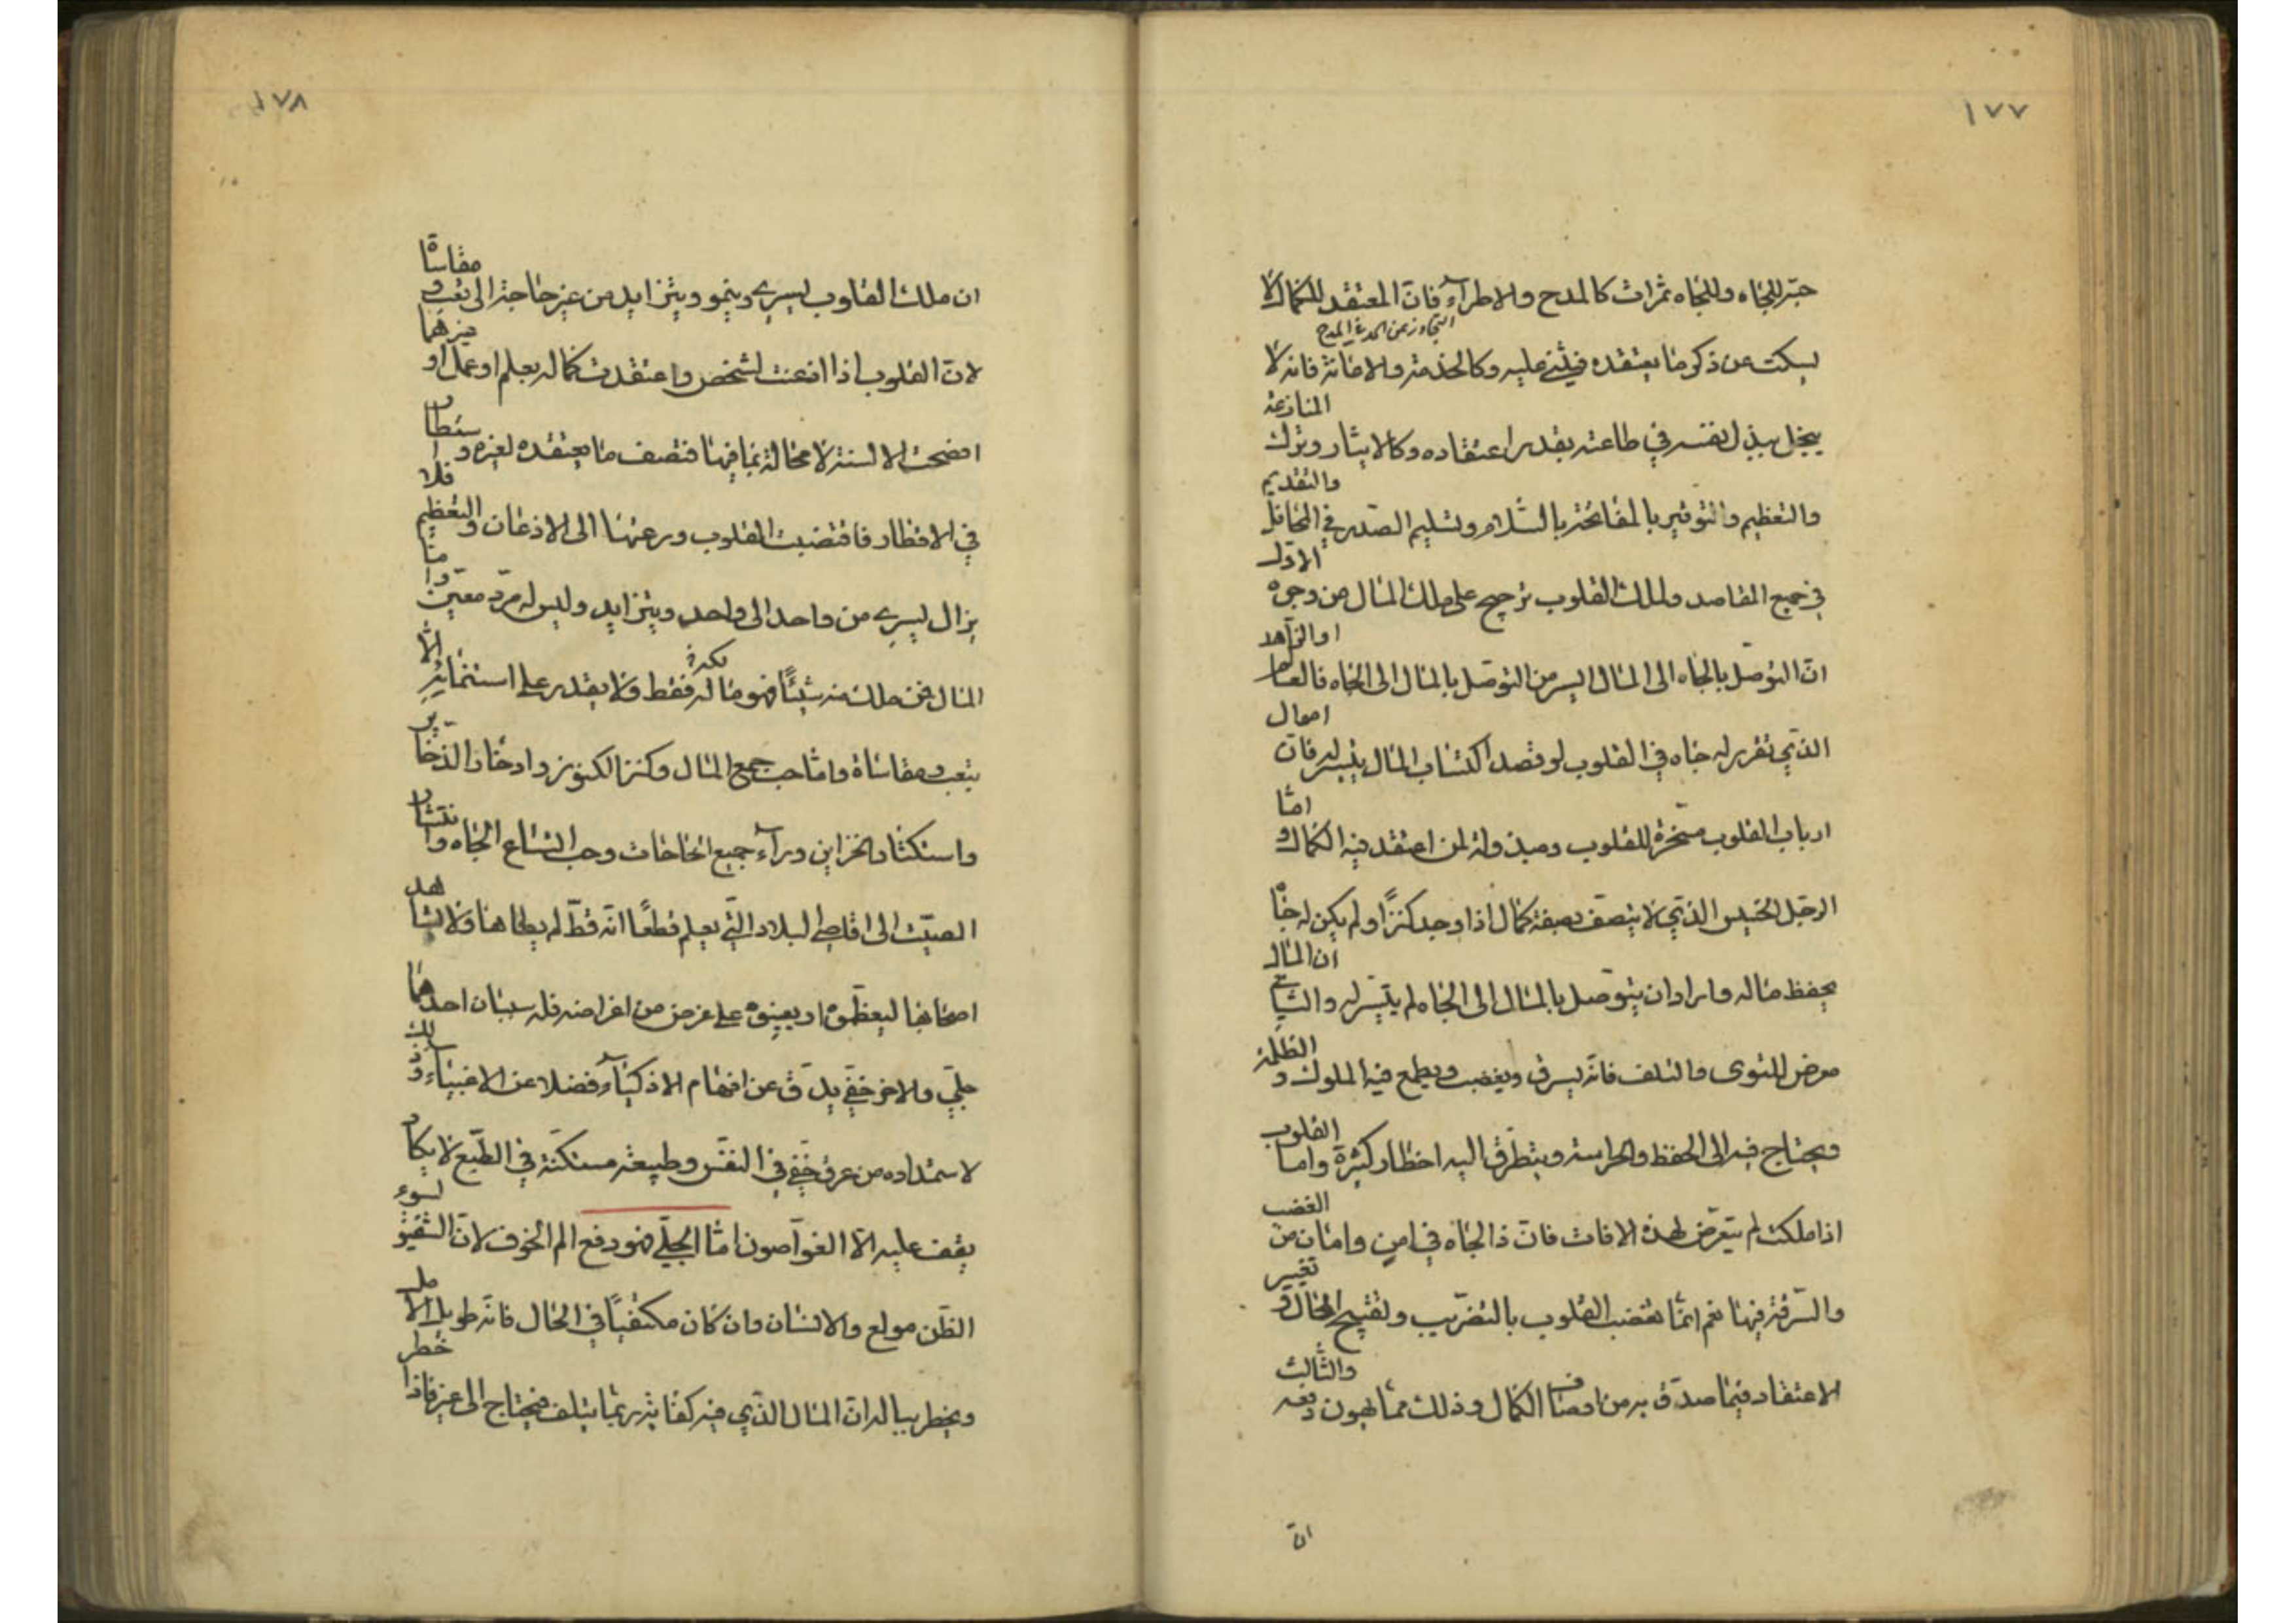 ١٧٧
حبّه للجاه وللجاه ثمرات كالمدح والاطرآء فانّ المعتقد للكمال لا
التجاوز عن الحد في المدح
يسكت عن ذكر ما يعتقده فيثني عليه وكالخدمة والاعانة فانه لا
يبخل ببذل نفسه في طاعته بقدر اعتقاده وكالايثار وترك المنازعة
والتعظيم والتوقير بالمفاتحة بالسّلام وتسليم الصّدر في المحافل والتقديم
في جميع المقاصد ولملك القلوب ترجيح على ملك المال من وجوه الاوّل
انّ التوصّل بالجاه الى المال ايسر من التوصّل بالمال الى الجاه فالعالم او الزّاهد
الذي تقرر له جاه في القلوب لو قصد اكتساب المال يتيسر له فانّ اموال
ارباب القلوب مسخّرة للقلوب ومبذولة لمن اعتقد فيه الكمال و امّا
الرجل الخسيس الذي لا يتصف بصفة كمال اذا وجد كنزًا ولم يكن له جاه
يحفظ ماله واراد ان يتوصّل بالمال الى الجاه لم يتيسّر له والثّاني ان المال
معرض للتوى والتلف فانّه يسرق ويغصب ويطمع فيه الملوك و الظلمة
ويحتاج فيه الى الحفظ والحراسة ويتطرّق اليه اخطار كثيرة واما القلوب
اذا ملكت لم يتعرّض لهذه الافات فانّ ذا الجاه في امن وامان من الغضب
والسّرقة فيها نعم انّما تغضب القلوب بالتضريب وتقبيح الحال و تغيير
الاعتقاد فيما صدّق به من اوصاف الكمال وذلك ممّا يهون دفعه والثّالث
انّ
١٧٨
ان ملك القلوب يسري وينمو ويتزايد من غير حاجة الى تعب و مقاساة
لانّ القلوب اذا اذعنت لشخص واعتقدت كماله بعلم او عمل او غيرهما
افصحت الالسنة لا محالة بما فيها فتصف ما يعتقده لغيره و استطار
في الاقطار فاقتضبت القلوب ودعتها الى الاذعان والتعظيم فلا
يزال يسري من واحد الى واحد ويتزايد وليس له مردّ معيّن وامّا
المال فمن ملك منه شيئًا فهو ماله فقط ولا يقدر على استنمائه الّا
بتعب ومقاساة وامّا حب جمع المال وكنز الكنوز وادخار الذّخاير
واستكثار الخزاين ورآء جميع الحاجات وحب اتساع الجاه وانتشار
الصيت الى اقاصي البلاد التّي يعلم قطعًا انّه قطّ لم يطاها ولا يشاهد
اصحابها ليعظّموه او يعينوه على غرض من اغراضه فله سببان احدهما
جليّ والاخر خفيّ يدقّ عن افهام الاذكيآء فضلا عن الاغبيآء وذلك
لاستمداده من عرق خفيّ في النفس وطبيعة مستكنّة في الطّبع لا يكاد
يقف عليه الّا الغوّاصون امّا الجليّ فهو دفع الم الخوف لانّ الشفيق بسوء
الظّن مولع والانسان وان كان مكتفيًا في الحال فانّه طويل الامل
ويخطر بباله انّ المال الذّي فيه كفايته ربّما يتلف فيحتاج الى غيره فاذا خطر